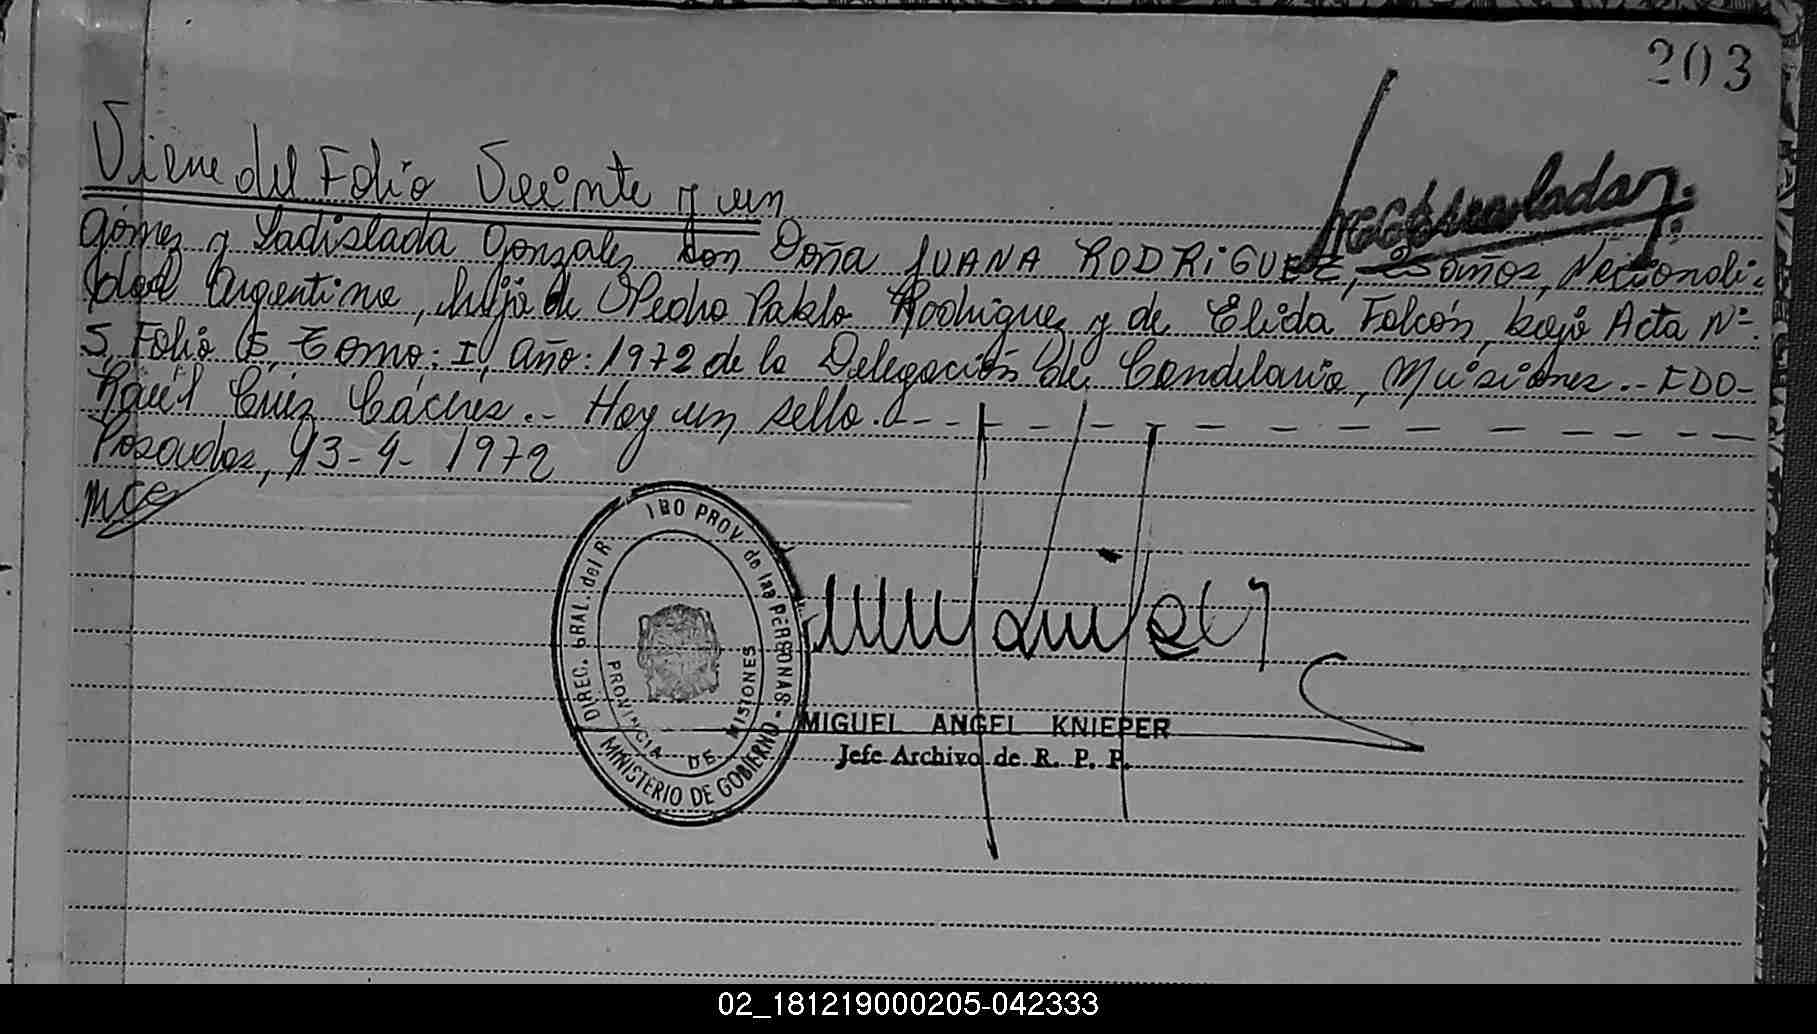 203
Viene del Folio Veinte y un
Gómez y Ladislada Gonzalez con Doña JUANA RODRIGUEZ, años, Nacionali-
dad Argentina, hija de Pedro Pablo Rodriguez y de Elida Falcón, bajo Acta Nº
5, Folio 5, Tomo: I, Año: 1972 de la Delegación de Candelaria, Misiones.- FDO-
Raúl Cáceres.- Hay un sello.-
Posadas, 13-4-1972
DIREC. GRAL. del R PROV. de las PERSONAS - MINISTERIO DE GOBIERNO
PROVINCIA DE MISIONES
MIGUEL ANGEL KNIEPER
Jefe Archivo de R. P. P.
02_181219000205-042333